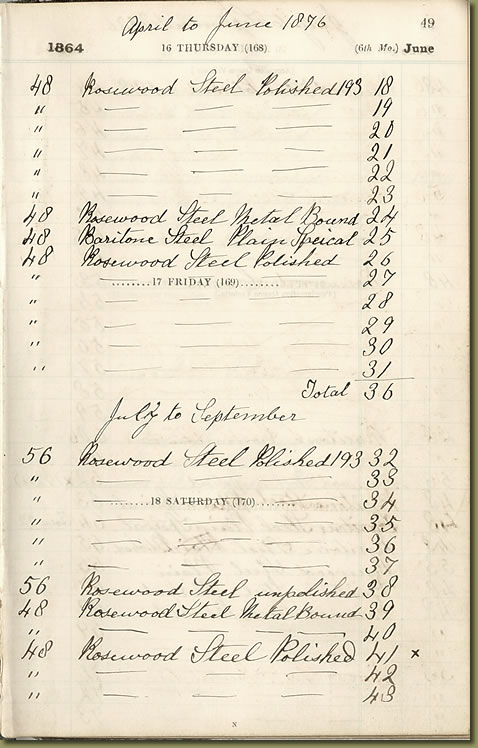 April to June 1876
49
1864 16 THURSDAY (168) (6th Mo.) June
48 Rosewood Steel Polished 193 18
" — — — 19
" — — — 20
" — — — 21
" — — — 22
" — — — 23
48 Rosewood Steel Metal Bound 24
48 Baritone Steel Plain Speical 25
48 Rosewood Steel Polished 26
" ........17 FRIDAY (169)........ 27
" — — — 28
" — — — 29
" — — — 30
" — — — 31
Total 36
July to September
56 Rosewood Steel Polished 193 32
" — — — 33
" ........18 SATURDAY (170)........ 34
" — — — 35
" — — — 36
" — — — 37
56 Rosewood Steel unpolished 38
48 Rosewood Steel Metal Bound 39
" — — — 40
48 Rosewood Steel Polished 41 x
" — — — 42
" — — — 43
N